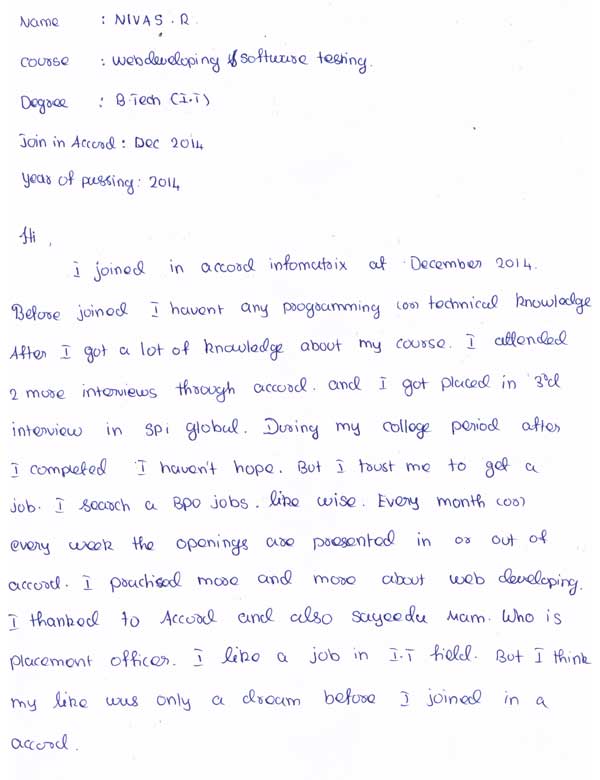 Name : NIVAS. R.
Course : Webdeveloping & Software testing.
Degree : B.Tech (I.T)
Join in Accord : Dec 2014
Year of passing : 2014
Hi,
I joined in accord infomatrix at December 2014.
Before joined I havent any programming (or) technical knowledge
After I got a lot of knowledge about my course. I attended
2 more interviews through accord. and I got placed in 3rd
interview in SPi global. During my college period after
I completed I haven't hope. But I trust me to get a
job. I search a BPO jobs. like wise. Every month (or)
every week the openings are presented in or out of
accord. I practised more and more about web developing.
I thanked to Accord and also sayeedu Mam. Who is
placement officer. I like a job in I.T field. But I think
my like was only a dream before I joined in a
accord.